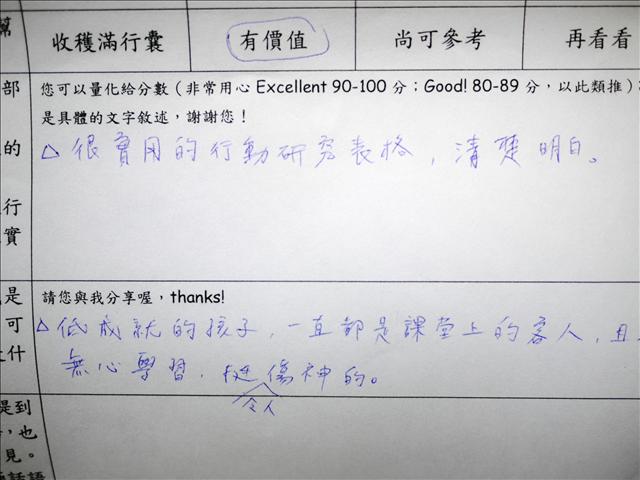 幫
收穫滿行囊 有價值 尚可參考 再看看
部
您可以量化給分數(非常用心 Excellent 90-100 分;Good! 80-89 分,以此類推)
是具體的文字敘述,謝謝您!
的
△ 很實用的行動研究表格,清楚明白。
行
實
是
請您與我分享喔,thanks!
可
△低成就的孩子,一直都是課堂上的客人,且
什
無心學習,挺令人傷神的。
是到
,也
見。